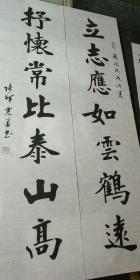 立志應如雲鶴遠
抒懷常比泰山高